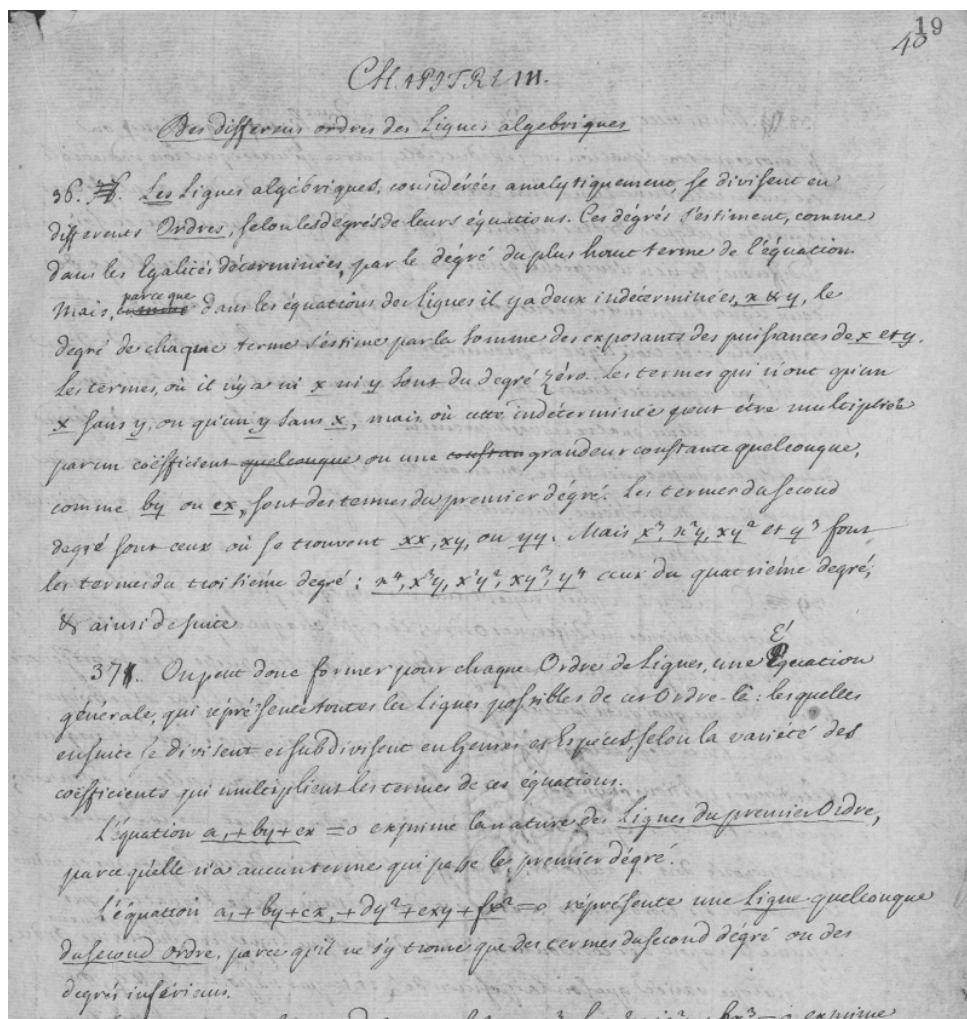 19
40
CHAPITRE III.
Des differens ordres des Lignes algebriques
36. Les Lignes algébriques, considérées analytiquement, se divisent en
différents Ordres, selon les dégrés de leurs équations. Ces dégrés s'estiment, comme
dans les Egalités déterminées, par le dégré du plus haut terme de l'équation
Mais, parce que dans les équations des lignes il y a deux indéterminées, x & y, le
degré de chaque terme s'estime par la somme des exposants des puissances de x et y.
Les termes, où il n'y a ni x ni y sont du degré zéro. Les termes qui n'ont qu'un
x sans y, ou qu'un y sans x, mais où cette indéterminée peut être multipliée
par un coëfficient quelconque ou une constan grandeur constante quelconque,
comme by ou cx, sont des termes du premier dégré. Les termes du second
degré sont ceux où se trouvent xx, xy, ou yy. Mais x³, x²y, xy² et y³ font
les termes du troisième degré: x⁴, x³y, x²y², xy³, y⁴ ceux du quatrième degré,
& ainsi de suite
37. On peut donc former pour chaque Ordre de Lignes, une Équation
générale, qui réprésente toutes les Lignes possibles de cet Ordre-là: lesquelles
ensuite se divisent et subdivisent en Genres et Espèces selon la variété des
coëfficients qui multiplient les termes de ces équations.
L'équation a,+by+cx=0 exprime la nature des Lignes du premier Ordre,
parce qu'elle n'a aucun terme qui passe le premier dégré.
L'équation a,+by+cx,+dy²+exy+fx²=0 réprésente une Ligne quelconque
du second Ordre, parce qu'il ne s'y trouve que des termes du second dégré ou des
degrés inférieurs.